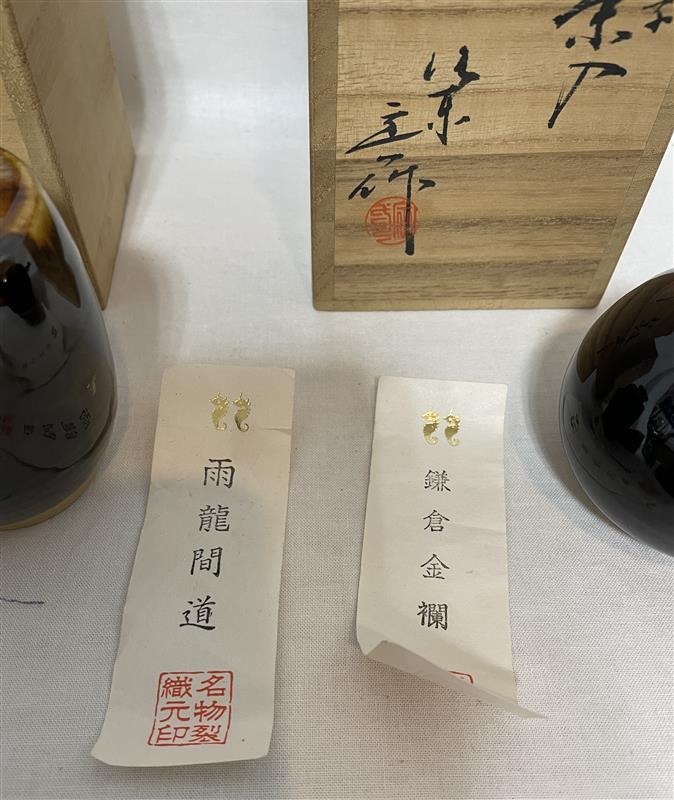 茶入
作
雨龍間道
名物裂
織元印
鎌倉金襴